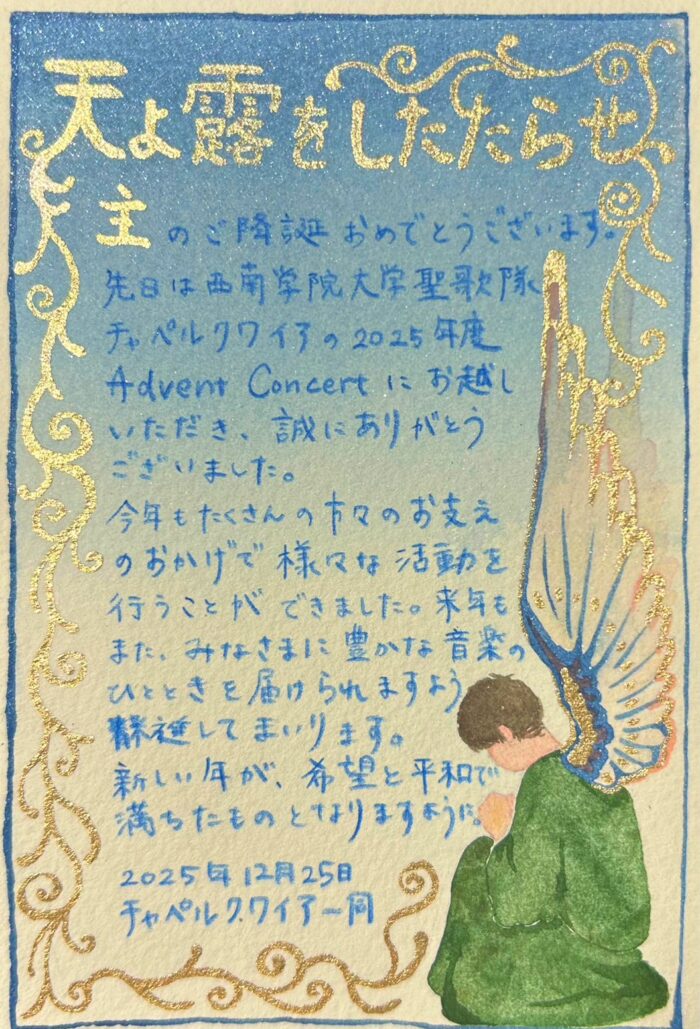 天よ露をしたたらせ
主のご降誕おめでとうございます。
先日は西南学院大学聖歌隊
チャペルクワイアの2025年度
Advent Concertにお越し
いただき、誠にありがとう
ございました。
今年もたくさんの方々のお支え
のおかげで様々な活動を
行うことができました。来年も
また、みなさまに豊かな音楽の
ひとときを届けられますよう
してまいります。
新しい年が、希望と平和で
満ちたものとなりますように。
2025年12月25日
チャペルクワイア一同